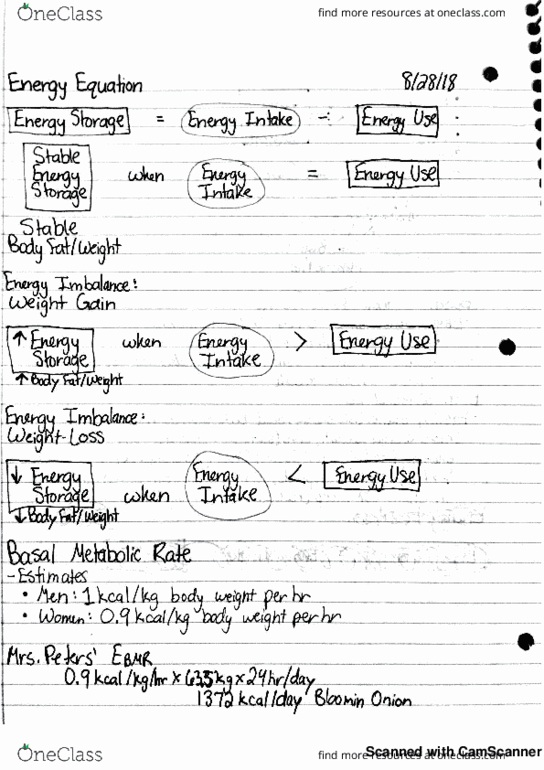 OneClass find more resources at oneclass.com
Energy Equation 8/28/18
Energy Storage = Energy Intake - Energy Use
Stable Energy Storage when Energy Intake = Energy Use
Stable
Body Fat/Weight
Energy Imbalance:
Weight Gain
↑ Energy Storage when Energy Intake > Energy Use
↑ Body Fat/Weight
Energy Imbalance:
Weight Loss
↓ Energy Storage when Energy Intake < Energy Use
↓ Body Fat/Weight
Basal Metabolic Rate
- Estimates
• Men: 1 kcal/kg body weight per hr
• Women: 0.9 kcal/kg body weight per hr
Mrs. Peters' EBMR
0.9 kcal/kg/hr × 63.5 kg × 24 hr/day
1372 kcal/day Bloomin Onion
OneClass find more resources at oneclass.com
Scanned with CamScanner